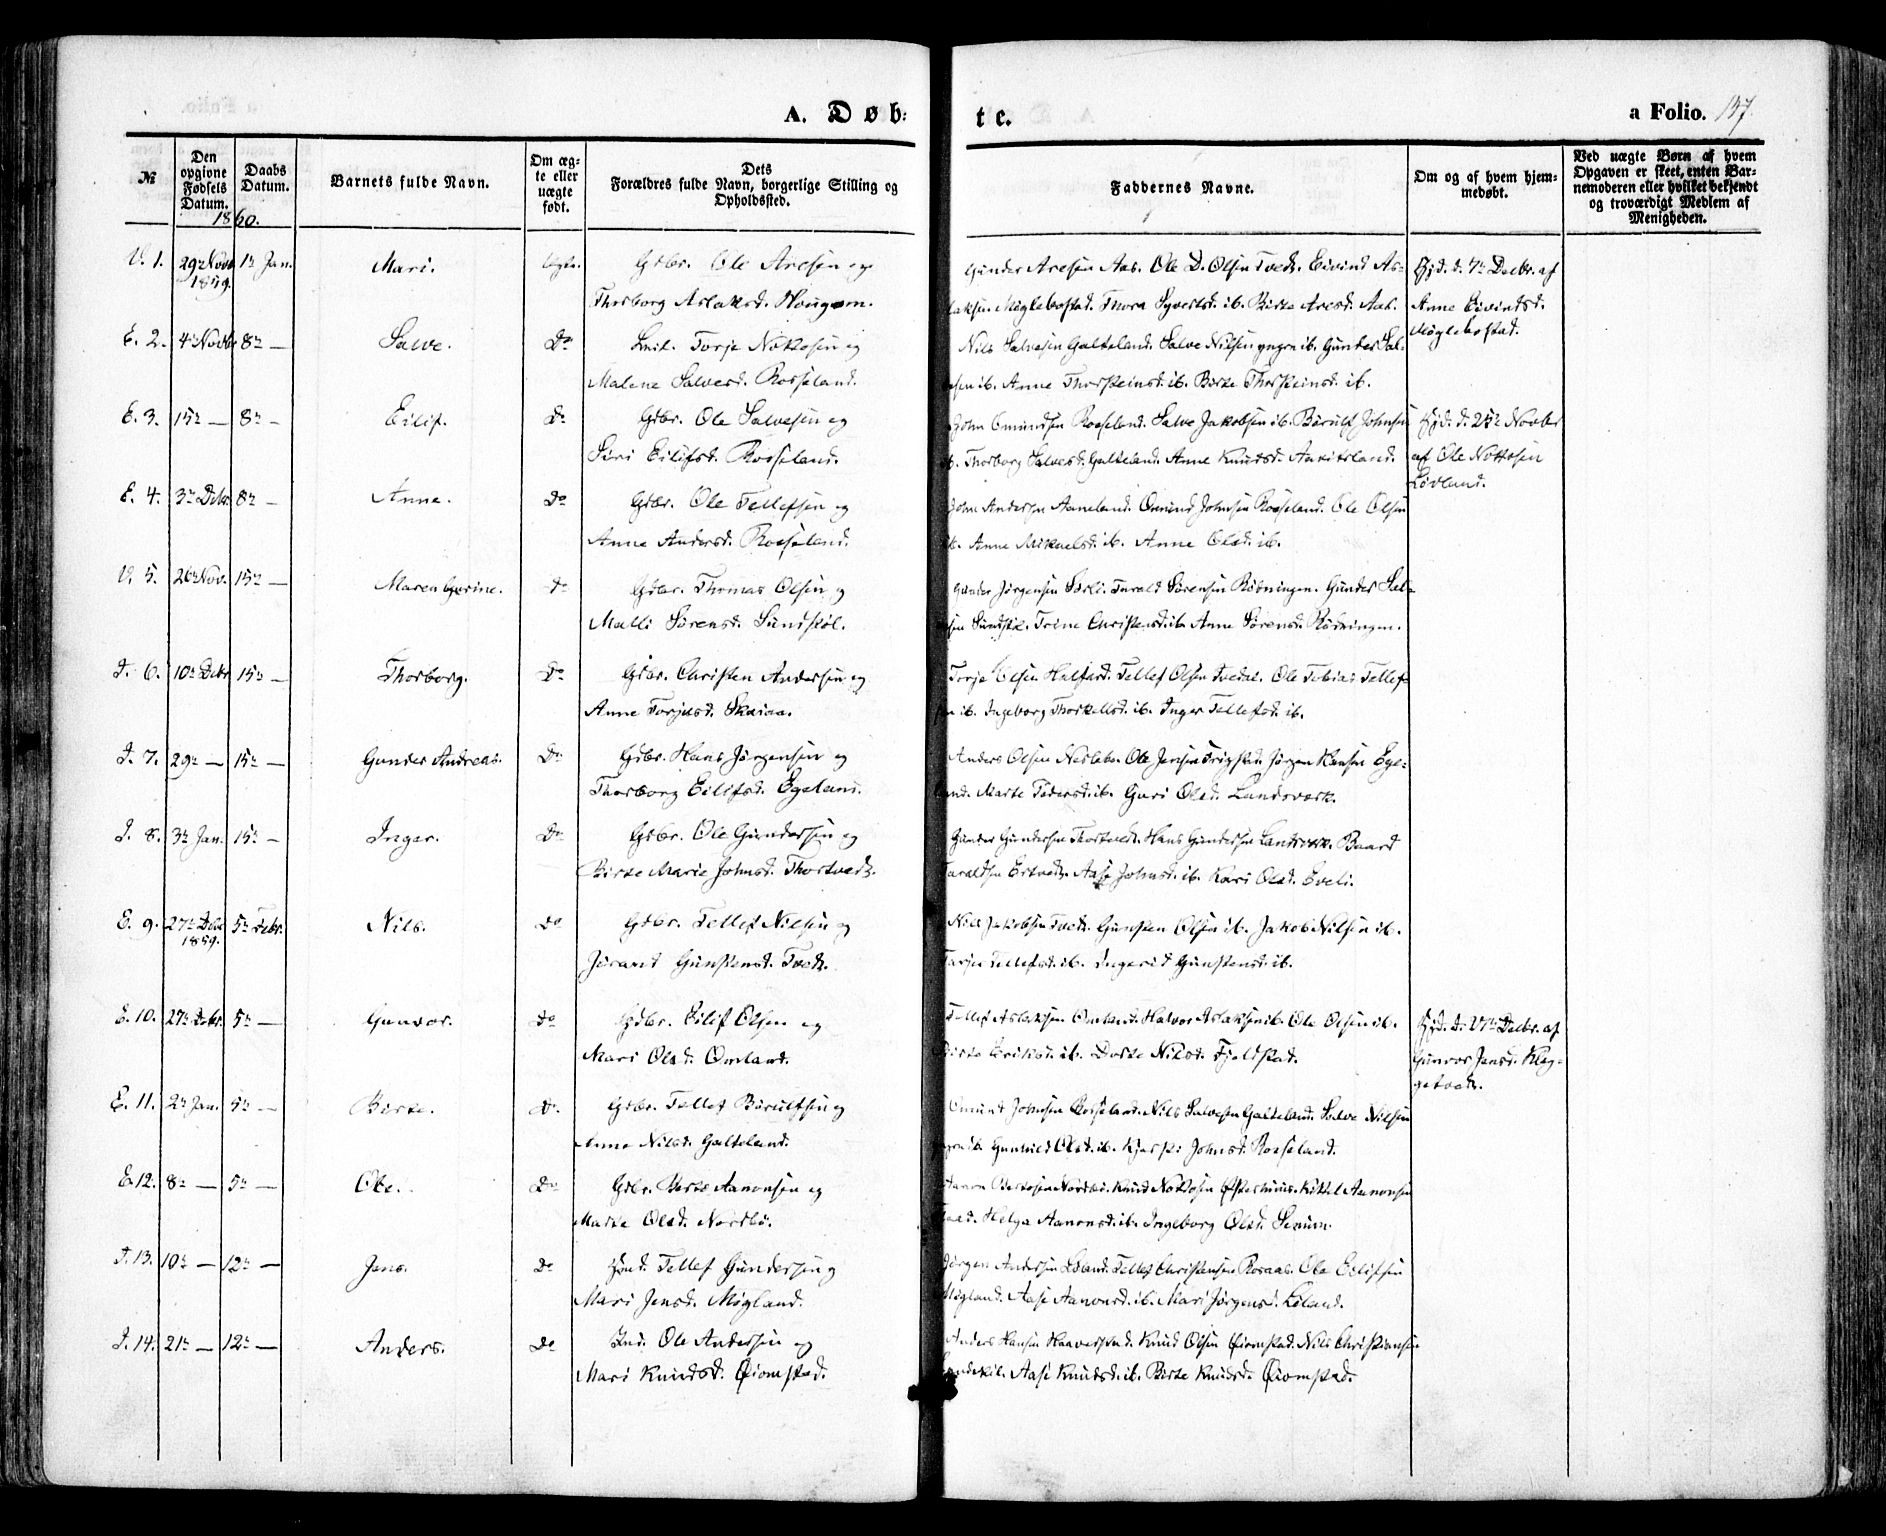 A. Døb-
te.
a Folio. 137.
№
Den opgivne Fødsels Datum.
Daabs Datum.
Barnets fulde Navn.
Om ægte eller uægte født.
Dets Forældres fulde Navn, borgerlige Stilling og Opholdssted.
Faddernes Navne.
Om og af hvem hjemmedøbt.
Ved uægte Børn af hvem Opgaven er skeet, enten Barnemoderen eller hvilket bekjendt og troværdigt Medlem af Menigheden.
1860.
V. 1. 29de Novb 1859. 1ste Jan. Mari. Ægte. Gdbr. Ole Aresen og
Thorborg Aslaksd. Hougom.
Gunder Aresen Aas. Ole D. Olsen Tvedt. Eivind As-
laksen Møglebostad. Thora Syvertsd. ib. Birte Aresd. Aas.
Hjd. d. 7de Decbr. af
Anne Eivindsd.
Møglebostad.
E. 2. 4de Novb 8de — Salve. Do Terje Nottosen og
Malene Salvesd. Rosseland.
Nils Salvesen Galteland. Salve Nilsen yngre ib. Gunder Sal-
vesen ib. Anne Thorsteinsd. ib. Birte Thorsteinsd. ib.
E. 3. 15de — 8de — Eilif. Do Gdbr. Ole Salvesen og
Siri Eilifsd. Rosseland.
John Omundsen Rosseland. Salve Jakobsen ib. Børulf Johnsen
ib. Thorborg Salvesd. Galteland. Anne Knudsd.
Hjd. d. 25de Novbr
af Ole Nottosen
Løvland.
E. 4. 3de Debr 8de — Anne. Do Gdbr. Ole Tellefsen og
Anne Andersd. Rosseland.
John Andersen Aaneland. Omund Johnsen Rosseland. Ole Olsen
ib. Anne Mikaelsd. ib. Anne Olsd. ib.
V. 5. 26de Nov. 15de — Maren Gurine. Do Gdbr. Thomas Olsen og
Malli Sørensd. Sundstøl.
Gunder Jørgensen Sørli. Tarald Sørensen Rødningen. Gunder Sal-
vesen Sundstøl. Trine Christensd. ib. Anne Sørensd. Rødningen.
I. 6. 10de Debr 15de — Thorborg. Do Gdbr. Christen Andersen og
Anne Torjusd. Skaiaa.
Terje Olsen Tellef Olsen Tvedt. Ole Tobias Tellef-
sen ib. Ingeborg Thorkellsd. ib. Inger Tellefsd. ib.
I. 7. 29de — 15de — Gunder Andreas. Do Gdbr. Hans Jørgensen og
Thorborg Eilifsd. Egeland.
Anders Olsen Ole Jensen Trigstad. Jørgen Hansen Ege-
land. Marte Pedersd. ib. Guri Olsd. Landsverk.
I. 8. 3de Jan. 15de — Inger. Do Gdbr. Ole Gundersen og
Birte Marie Johnsd. Thortvedt.
Gunder Gundersen Thortvedt. Hans Gundersen Landsverk. Baard
Taraldsen Ertvedt. Aase Johnsd. ib. Kari Olsd. Eveli.
E. 9. 27de Debr 1859. 5te Febr. Nils. Do Gdbr. Tellef Nilsen og
Jørand Gunstensd. Tvedt.
Nils Jakobsen Tvedt. Gunsten Olsen ib. Jakob Nilsen ib.
Tarjer Tellefsd. ib. Ingerid Gunstensd. ib.
E. 10. 27de Debr. 5te — Gunvor. Do Gdbr. Eilif Olsen og
Mari Olsd. Omland.
Tellef Aslaksen Omland. Halvor Aslaksen ib. Ole Olsen ib.
Birte Eriksd. ib. Dorte Nilsd. Fjeldstad.
Hjd. d. 27de Decbr. af
Gunvor Jensd. Klep-
getvedt.
E. 11. 2de Jan. 5te — Birte. Do Gdbr. Tellef Børulfsen og
Anne Nilsd. Galteland.
Omund Johnsen Rosseland. Nils Salvesen Galteland. Salve Nilsen
yngre ib. Gunvild Olsd. ib. Kjersti Johnsd. Rosseland.
E. 12. 8de — 5te — Ole. Do Gdbr. Berte Aanonsen og
Marte Olsd. Nordbø.
Aanon Bertesen Nordbø. Knud Nottosen Østerhuus. Kittel Aanonsen
Helga Aanonsd. ib. Ingeborg Olsd. Senum.
I. 13. 10de — 12te — Jens. Do Tellef Gundersen og
Mari Jensd. Møgland.
Jørgen Andersen Leland. Tellef Christensen Rosaas. Ole Eilifsen
Møgland. Aase Aanonsd. ib. Mari Jørgensd. Leland.
I. 14. 21de — 12te — Anders. Do Ind. Ole Andersen og
Mari Knudsd. Øiomstad.
Anders Hansen Haaverstad. Knud Olsen Øiomstad. Nils Christiansen
Aase Knudsd. ib. Birte Knudsd. Øiomstad.